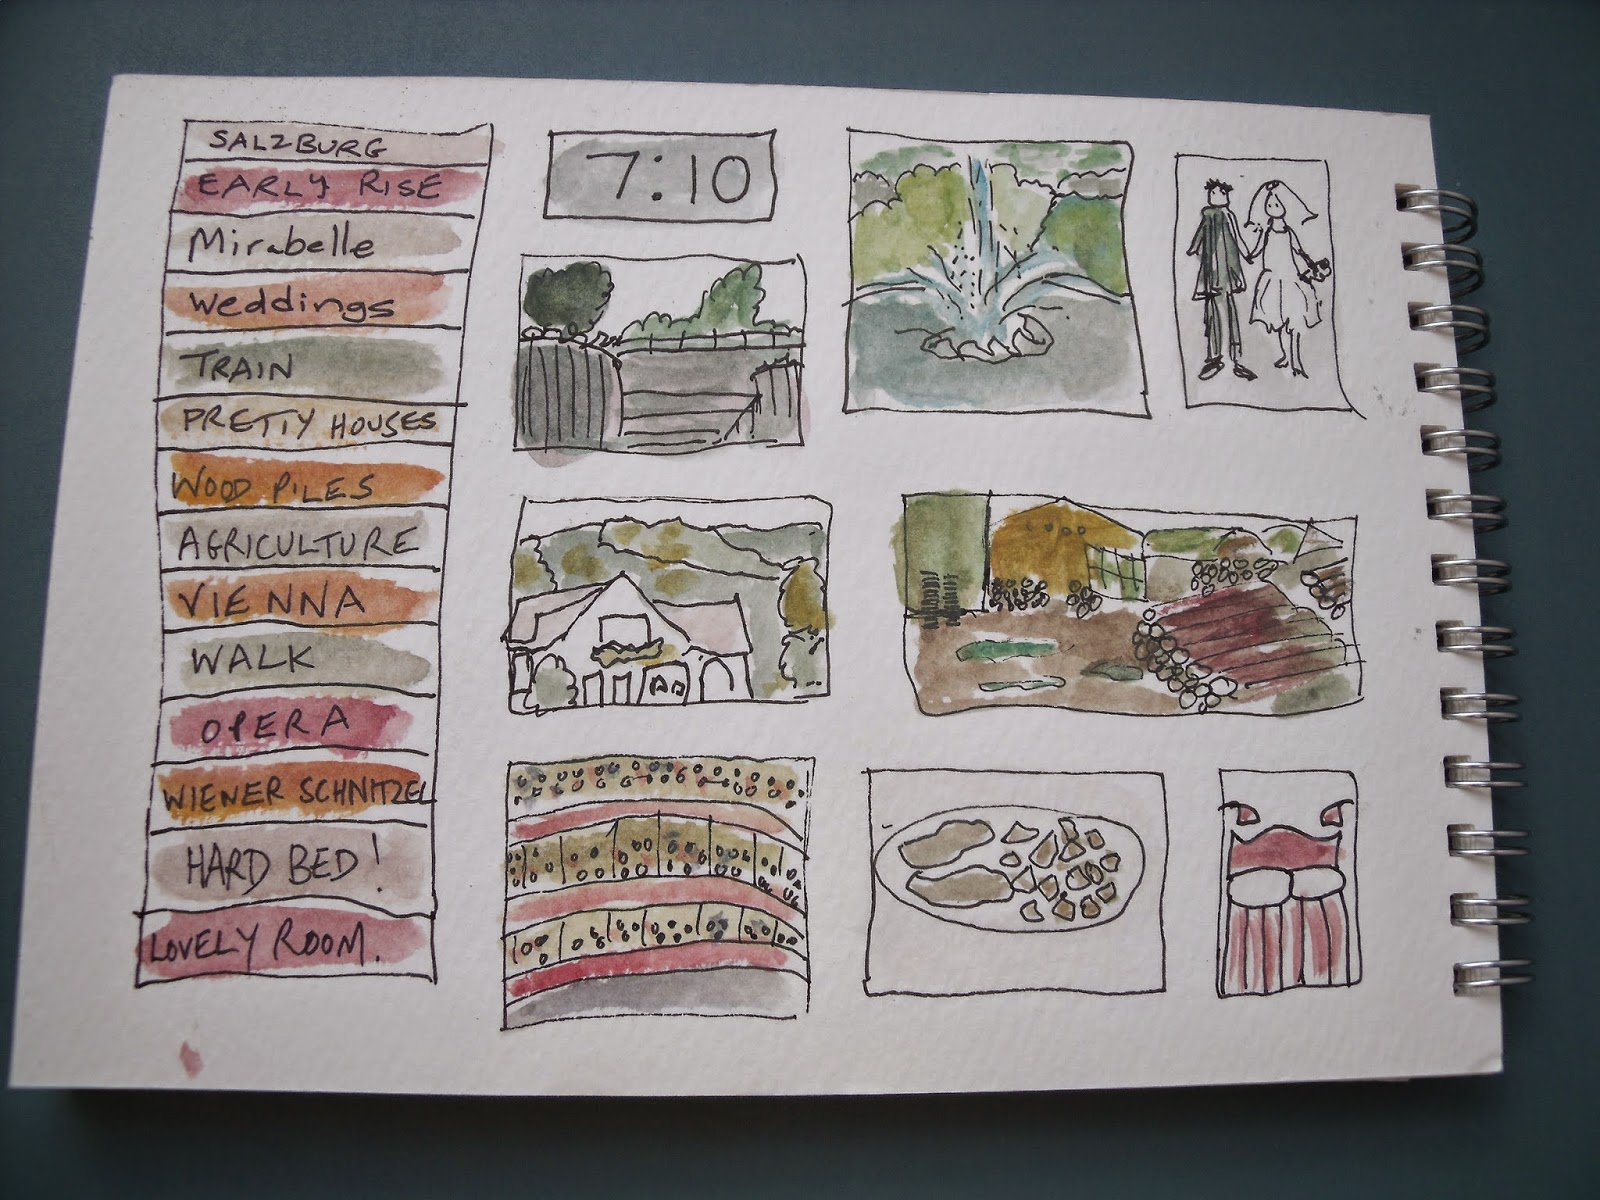 SALZBURG
EARLY RISE
Mirabelle
weddings
TRAIN
PRETTY HOUSES
WOOD PILES
AGRICULTURE
VIENNA
WALK
OPERA
WIENER SCHNITZEL
HARD BED!
LOVELY ROOM.
7:10